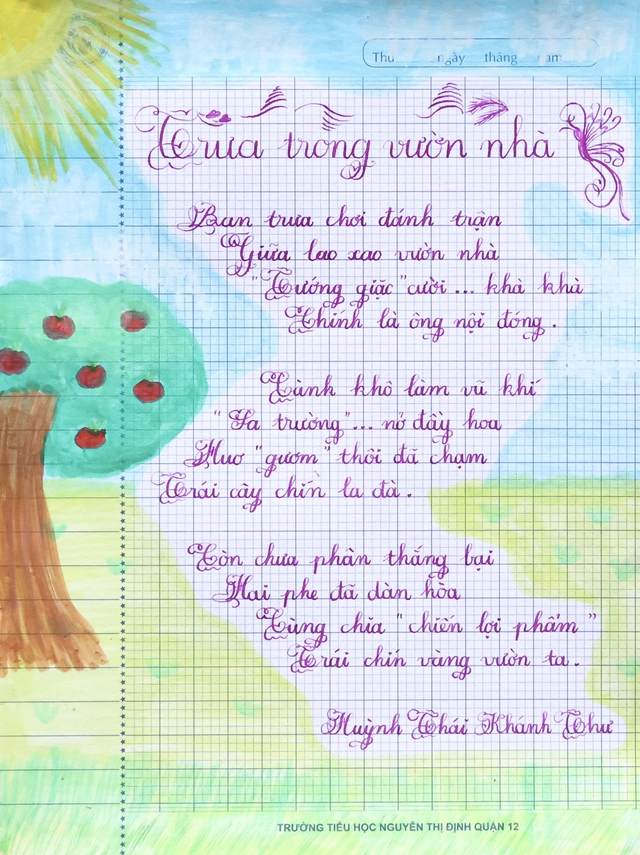 Thứ ngày tháng năm
Trưa trong vườn nhà
Ban trưa chơi đánh trận
Giữa lao xao vườn nhà
"Tướng giặc" cười ... khà khà
Chính là ông nội đóng.
Cành khô làm vũ khí
"Sa trường" ... nở đầy hoa
Huơ "gươm" thôi đã chạm
Trái cây chín la đà.
Còn chưa phân thắng bại
Hai phe đã dàn hòa
Cùng chia "chiến lợi phẩm"
Trái chín vàng vườn ta.
Huỳnh Thái Khánh Thư
TRƯỜNG TIỂU HỌC NGUYỄN THỊ ĐỊNH QUẬN 12